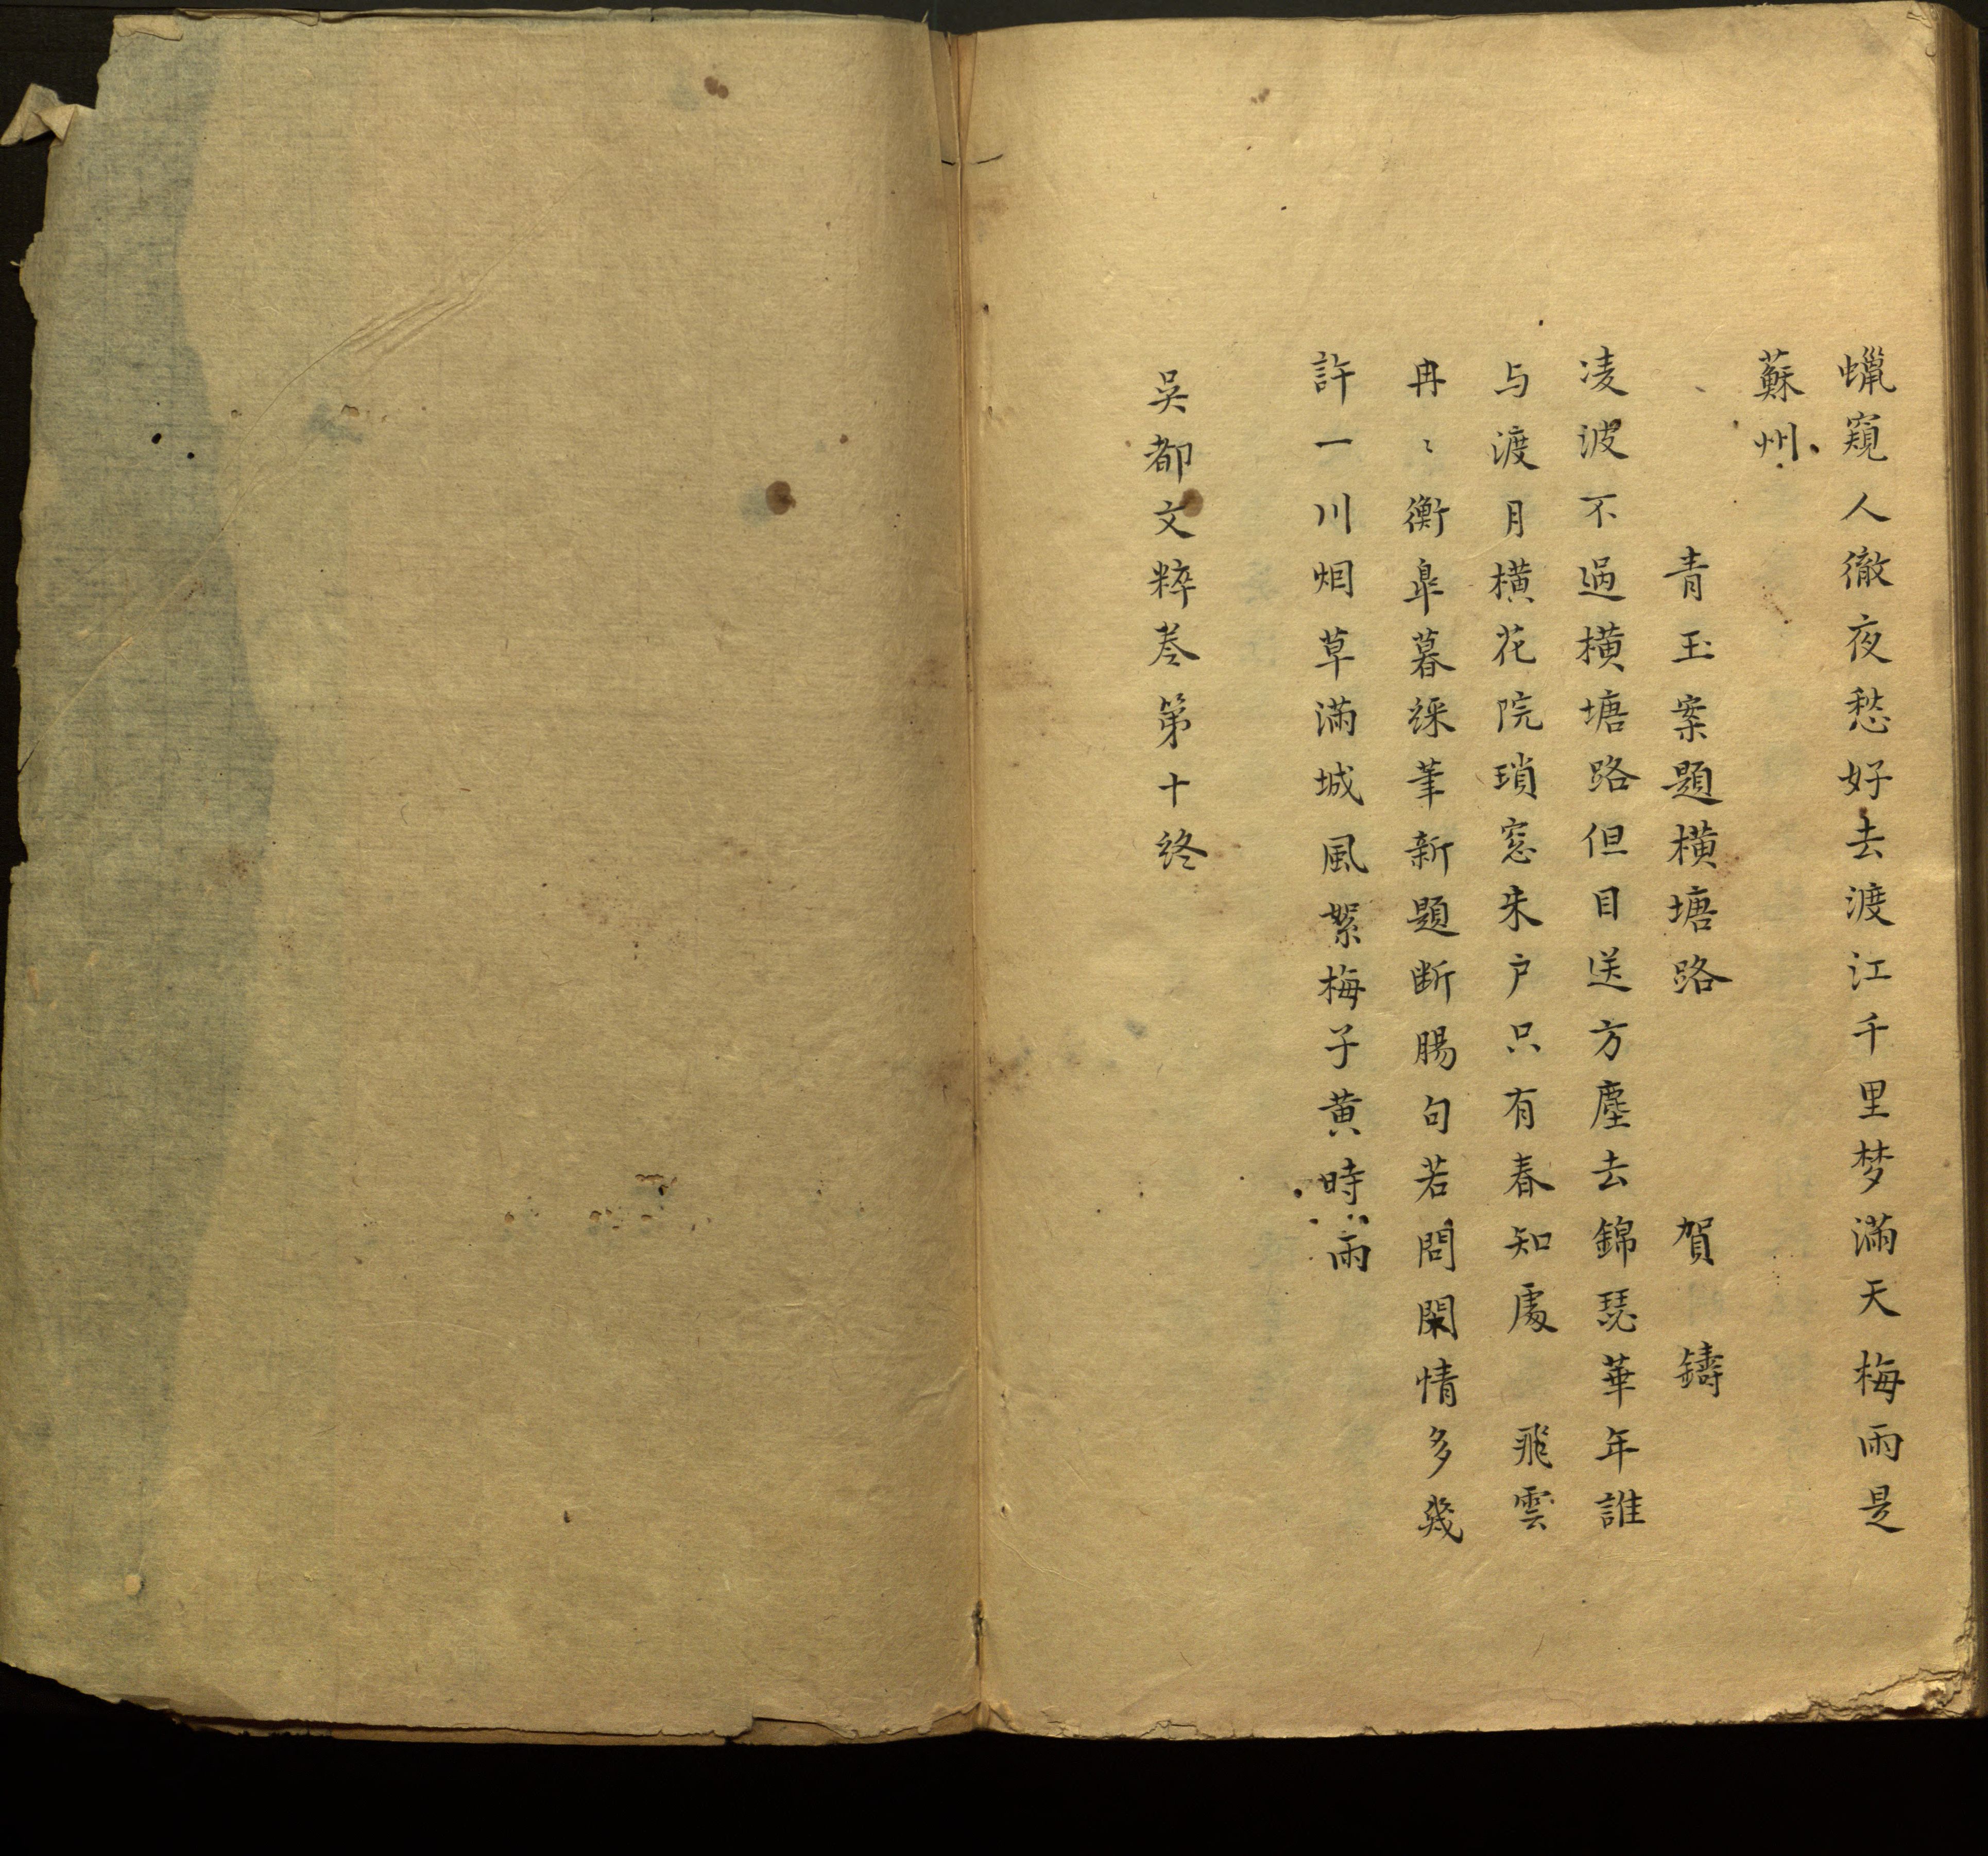 蠟窺人徹夜愁好去渡江千里梦滿天梅雨是
蘇州
青玉案題横塘路　賀　鑄
凌波不過横塘路但目送方塵去錦瑟華年誰
与渡月横花院瑣窓朱户只有春知處　飛雲
冉〻衡臯暮綵筆新題断腸句若問閑情多㡬
許一川烟草滿城風絮梅子黄時雨
吴都文粹卷第十終